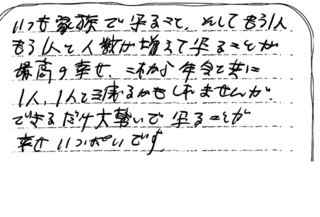 いつも家族で来ること、そしてもう1人
もう1人と人数が増えて来ることが
最高の幸せ、これから年令と共に
1人、1人と減るかもしれませんが、
できるだけ大勢で来ることが
幸せいっぱいです